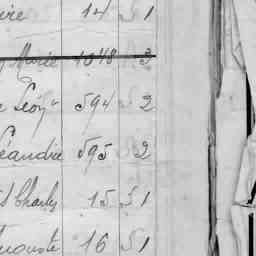 ire 14 S 1
Marie 1048 S 3
Léon 594 S 2
Léandre 595 S 2
St Charles 15 S 1
Auguste 16 S 1